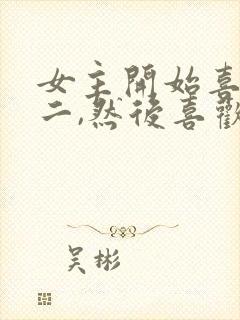 女主開始喜
二,然後喜歡
吴彬